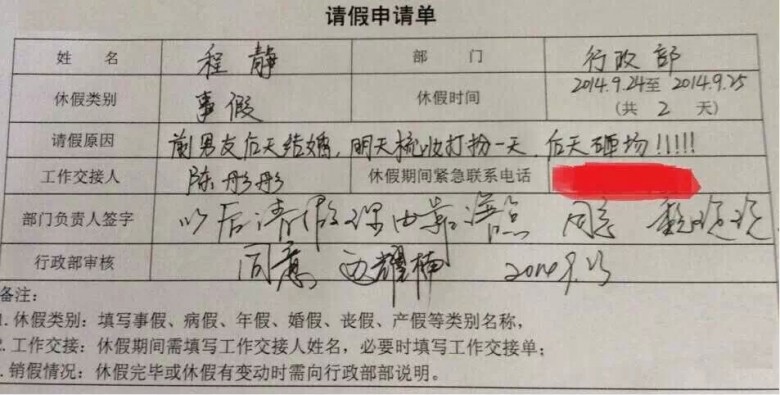 请假申请单
姓 名 程静 部 门 行政部
休假类别 事假 休假时间 2014.9.24至2014.9.25
(共 2 天)
请假原因 前男友后天结婚,明天梳妆打扮一天,后天砸场!!!!!
工作交接人 陈彤彤 休假期间紧急联系电话
部门负责人签字 以后请假理由靠谱点 同意
行政部审核 同意 耀楠 2014.9.23
备注:
1.休假类别:填写事假、病假、年假、婚假、丧假、产假等类别名称,
2.工作交接:休假期间需填写工作交接人姓名,必要时填写工作交接单;
.销假情况:休假完毕或休假有变动时需向行政部部说明。